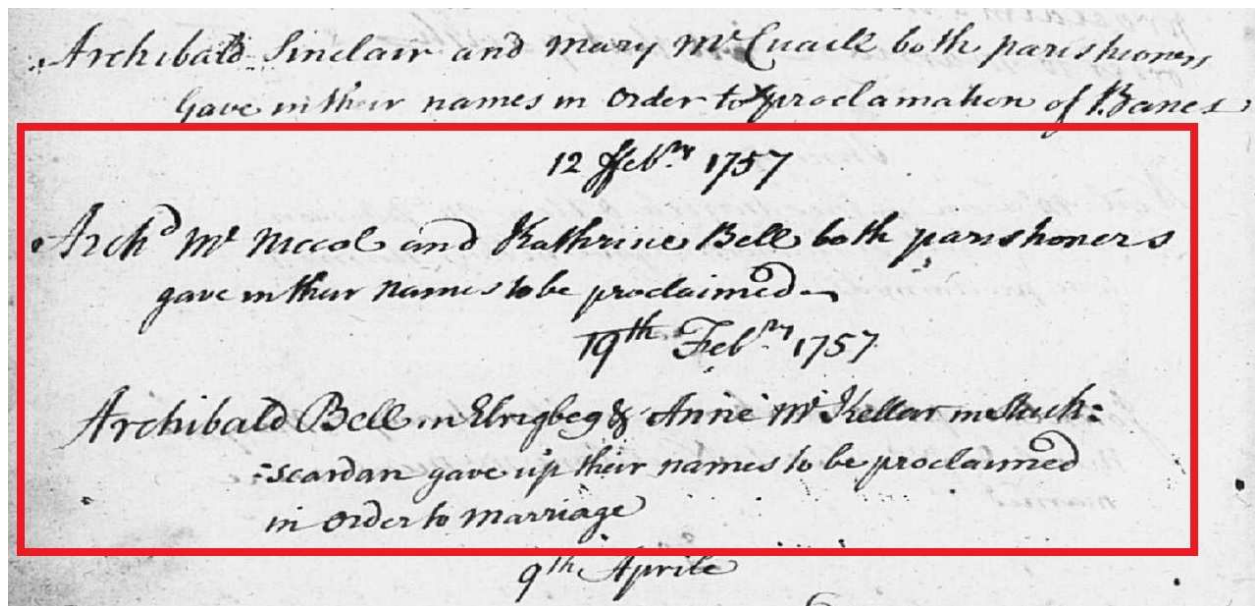 Archibald Sinclair and Mary Mc Cuaick both parishioners
Gave in their names in Order to proclamation of Banes
12 ffebry 1757
Archd Mc Niccol and Kathrine Bell both parishoners
gave in their names to be proclaimed
19th Febry 1757
Archibald Bell in Elrigbeg & Anne Mc Kellar in Stuck:
:scardan gave up their names to be proclaimed
in Order to marriage
9th Aprile